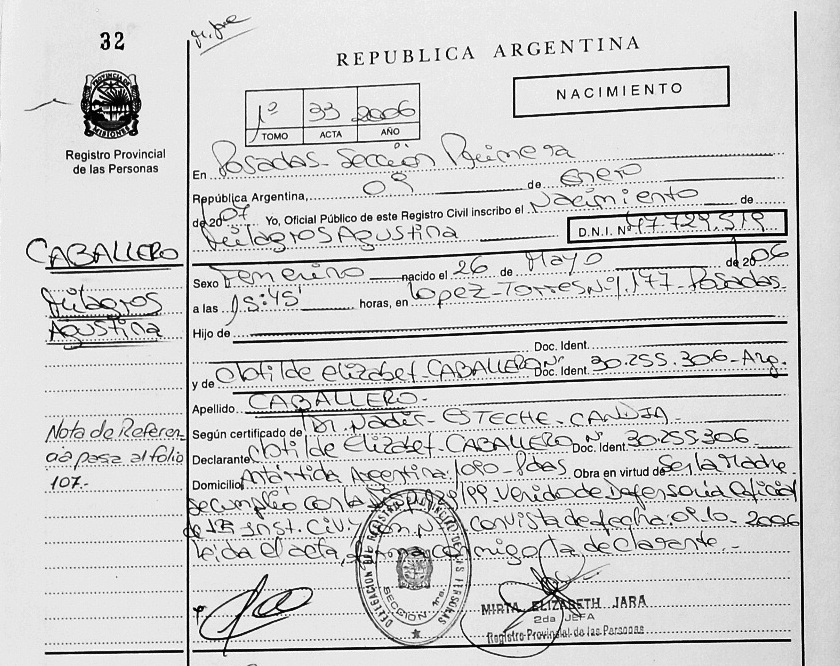 32
REPUBLICA ARGENTINA
NACIMIENTO
1º 33 2006
TOMO ACTA AÑO
PROVINCIA DE MISIONES
Registro Provincial
de las Personas
En Posadas - Sección Primera
República Argentina, 09 de Enero
de 2007 Yo, Oficial Público de este Registro Civil inscribo el Nacimiento de
Milagros Agustina D.N.I. Nº 47.729.519
CABALLERO
Milagros
Agustina
Sexo Femenino nacido el 26 de Mayo de 2006
a las 15:45' horas, en Lopez-Torres Nº 1.177-Posadas
Hijo de
Doc. Ident.
y de Clotilde Elizabet-CABALLERO Nº Doc. Ident. 30.255.306-Arg.
Apellido CABALLERO-
Según certificado de Dr. Nadir- ESTECHE-CANDIA-
Declarante Clotilde Elizabet-CABALLERO Nº Doc. Ident. 30.255.306
Domicilio Antártida Argentina 1090-Pdas Obra en virtud de Ser la Madre
Nota de Referen
cia pasa al folio
107.-
se cumplio con la Venido de Defensoria Oficial
de 1ra Inst. Civil con vista de fecha 2006
leida el acta, la firma conmigo la declarante.-
DELEGACION DEL REGISTRO PROVINCIAL DE LAS PERSONAS
SECCION 1ra.
MIRTA ELIZABETH JARA
2da JEFA
Registro Provincial de las Personas